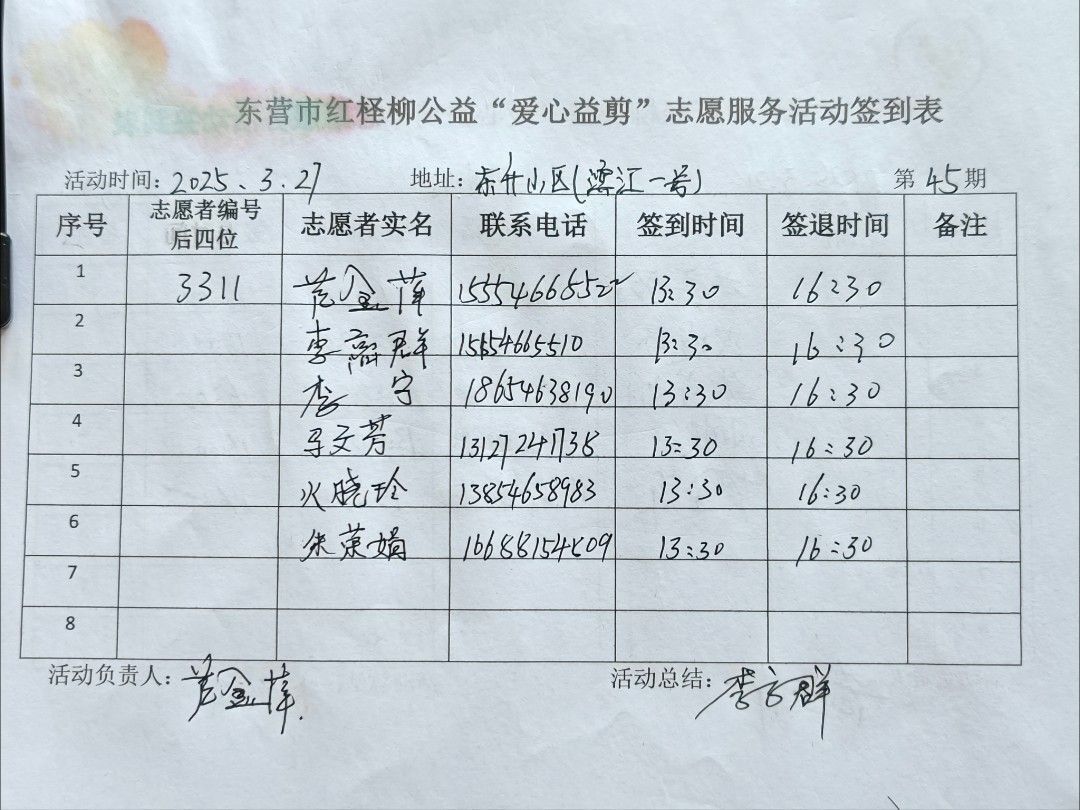 东营市红柽柳公益“爱心益剪”志愿服务活动签到表
活动时间：2025.3.27 地址：东升小区(滨江一号) 第45期
序号 志愿者编号后四位 志愿者实名 联系电话 签到时间 签退时间 备注
1 3311 范金萍 15554668522 13:30 16:30
2 李群 15654665510 13:30 16:30
3 李宁 18654638190 13:30 16:30
4 马文芳 13127241738 13:30 16:30
5 火晓玲 13854658983 13:30 16:30
6 朱荣娟 16688154809 13:30 16:30
7
8
活动负责人：范金萍 活动总结：李群